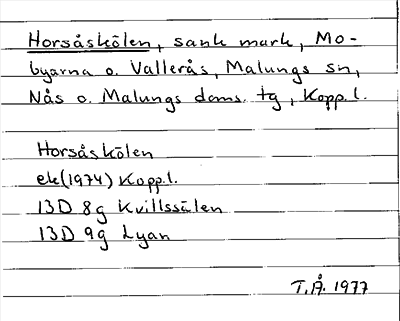 Horsåskölen, sank mark, Mo-
byarna o. Vallerås, Malungs sn,
Nås o. Malungs doms. tg, Kopp. l.
Horsåskölen
ek (1974) Kopp.l.
13D 8g Kvillssälen
13D 9g Lyan
T.Å. 1977